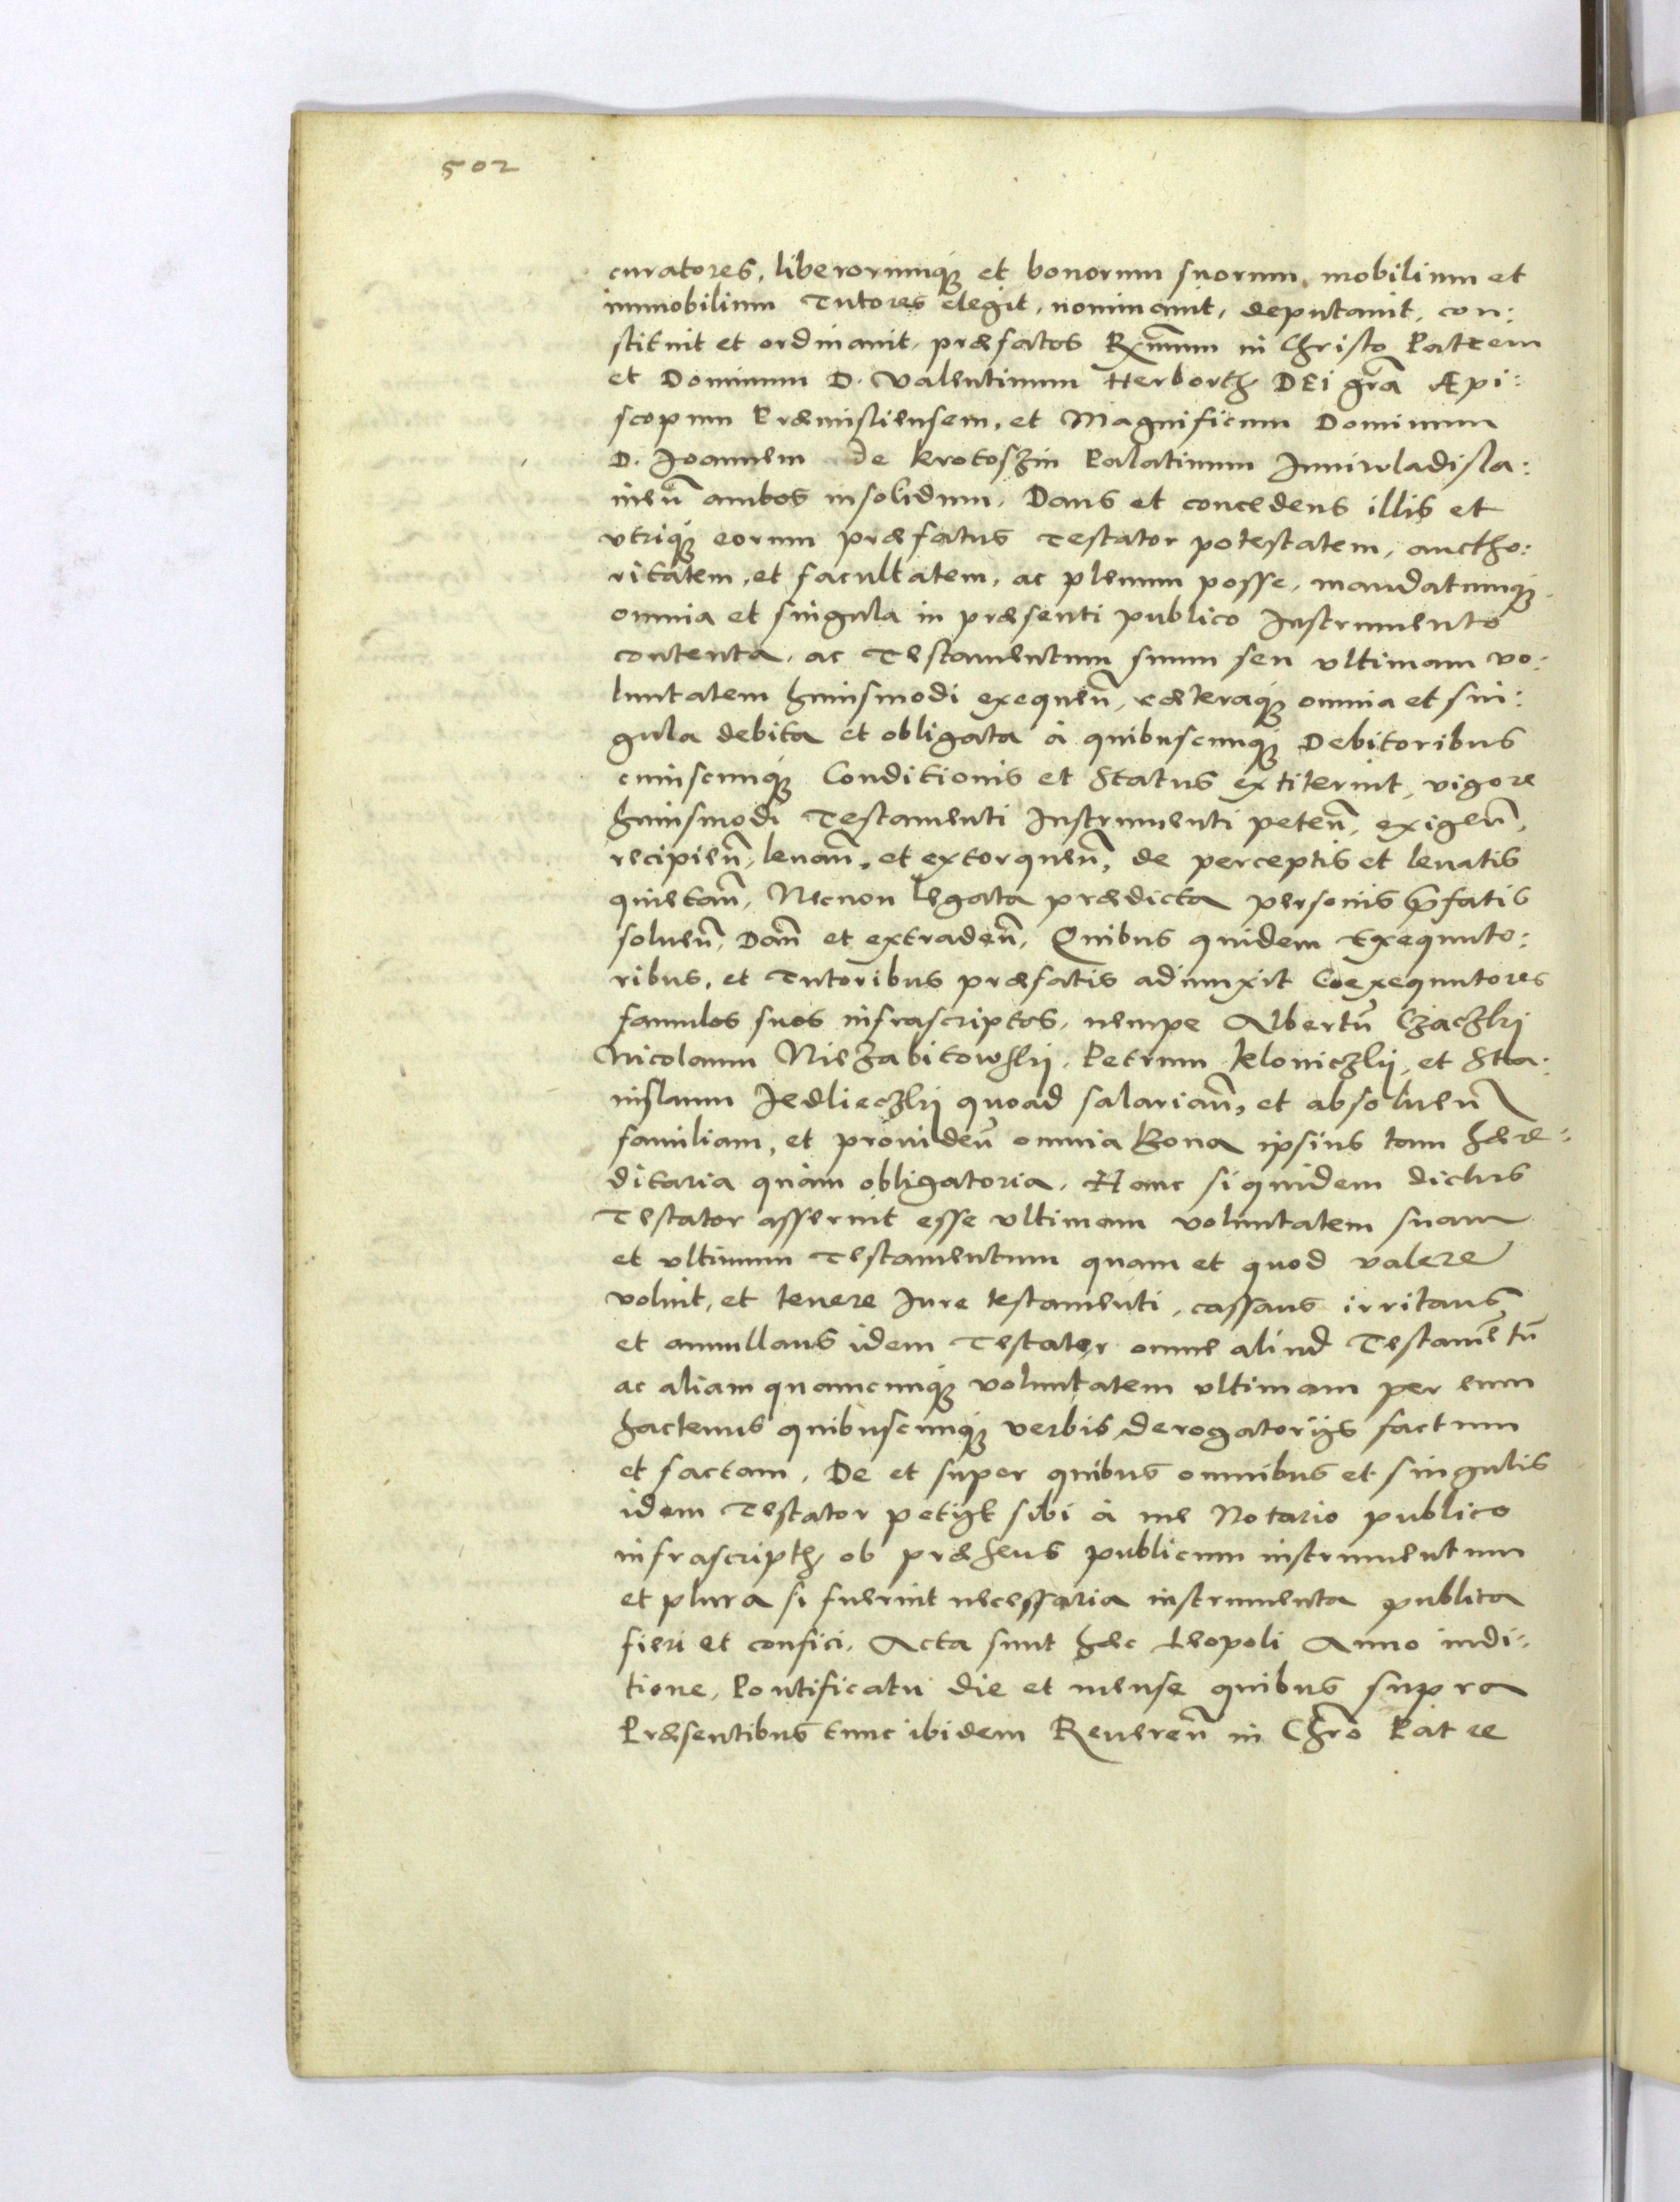 502
curatores, liberorumq́ꝫ et bonorum suorum, mobilium et
immobilium Tutores elegit, nominauit, deputauit, con:
stituit et ordinauit, præfatos Rx̅mum in Christo Patrem
et Dominum D. Valentinum Herborth DEi gr̃a Æpi:
scopum Præmisliensem, et Magnificum Dominum
D. Joannem de Krotoszin Palatinum Juniwladisla:
uieñ ambos insolidum, Dans et concedens illis et
vtriq́ꝫ eorum præfatus Testator potestatem, auctho:
ritatem, et facultatem, ac plenum posse, mandatumq́ꝫ
omnia et singula in præsenti publico Instrumento
contenta, ac Testamentum suum seu ultimam vo:
luntatem huiusmodi exequeñ, cæteraq́ꝫ omnia et sin:
gula debita et obligata à quibuscunq́ꝫ Debitoribus
cuiuscunq́ꝫ Conditionis et Status extiterint, vigore
huiusmodi Testamenti Instrumenti peteñ, exigeñ,
recipieñ, leuañ, et extorqueñ, de perceptis et leuatis
quietañ, Necnon legata prædicta personis p̃fatis
solueñ, Dañ et extradeñ, Quibus quidem Exequuto:
ribus, et Tutoribus præfatis adiunxit Coexequutores
famulos suos infrascriptos, nempe Albertũ Czaczkij
Nicolaum Niezabitowskij, Petrum Kloniczkij, et Sta:
nislaum Jedlieczkij quoad salariañ, et absolueñ
familiam, et prouideñ omnia Bona ipsius tam hære:
ditaria quàm obligatoria. Hanc siquidem dictus
Testator asseruit esse vltimam voluntatem suam
et vltimum Testamentum quam et quod valere
voluit, et tenere Jure testamenti, cassans irritans
et annullans idem Testator omne aliud Testamẽtũ
ac aliam quamcunq́ꝫ voluntatem vltimam per eum
hactenus quibuscunq́ꝫ verbis derogatorijs factum
et factam. De et super quibus omnibus et singulis
idem Testator petijt sibi à me Notario publico
infrascripth, ob præhens publicum instrumentum
et plura si fuerint necessaria instrumenta publica
fieri et confici. Acta sunt hæc Leopoli Anno indi:
tione, Pontificatu die et mense quibus supra
Præsentibus tunc ibidem Reuereñ in Chr̃o Patre